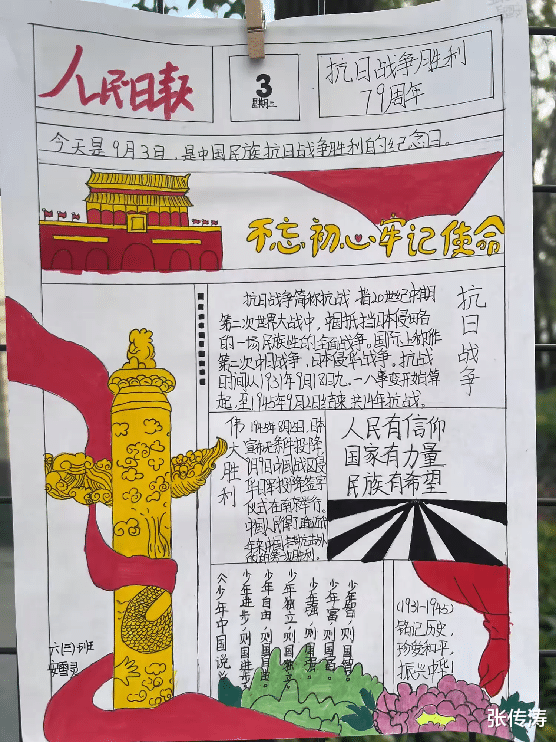 人民日报
3
星期二
抗日战争胜利
79周年
今天是9月3日,是中国民族抗日战争胜利的纪念日。
不忘初心牢记使命
抗日战争
抗日战争简称抗战,指20世纪中期
第二次世界大战中,中国抵挡日本侵略
的一场民族性的全面战争。国际上称作
第二次中日战争,日本侵华战争。抗战
时间从1931年9月18日九一八事变开始算
起,至1945年9月2日结束共14年抗战。
伟大胜利
宣布无条件投降
仪式在南京举行。
人民有信仰
国家有力量
民族有希望
少年智,则国智。
少年富,则国富。
少年强,则国强,
少年独立,则国独立。
少年自由,则国自由。
少年进步,则国进步。
《少年中国说》
(1931-1945)
铭记历史,
珍爱和平,
振兴中华!
六(三)班
张传涛